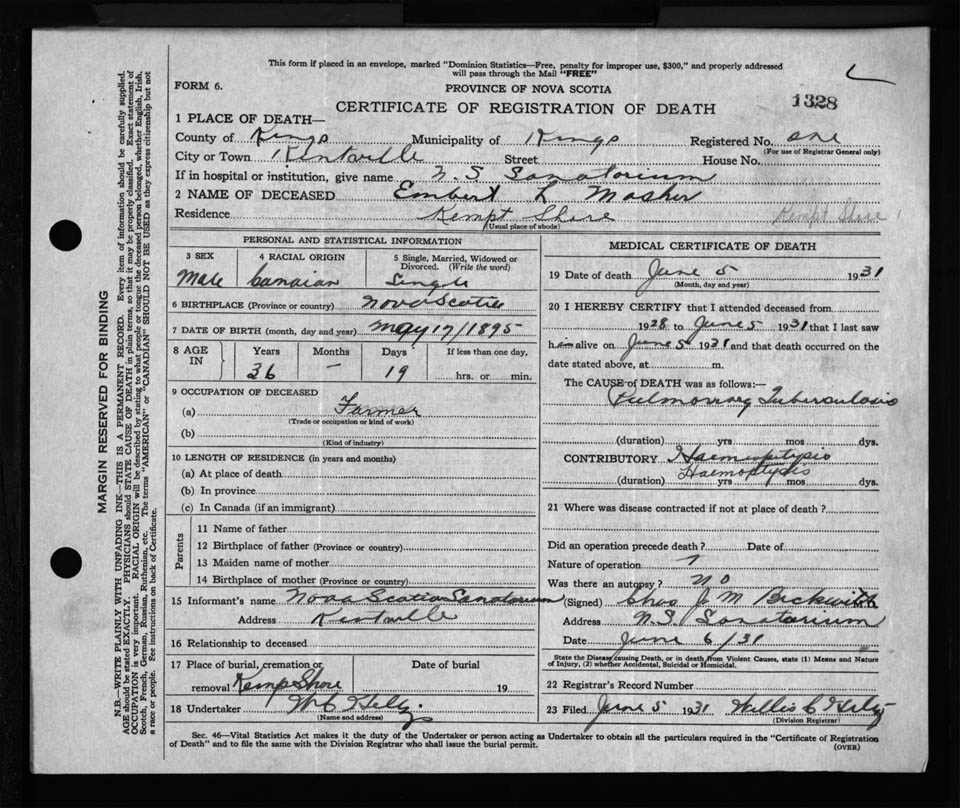 This form if placed in an envelope, marked "Dominion Statistics—Free, penalty for improper use, $300," and properly addressed
will pass through the Mail "FREE"
FORM 6.
PROVINCE OF NOVA SCOTIA
CERTIFICATE OF REGISTRATION OF DEATH
1328
1 PLACE OF DEATH—
County of Kings Municipality of Kings Registered No. one
(For use of Registrar General only)
City or Town Kentville Street House No.
If in hospital or institution, give name N. S Sanatorium
2 NAME OF DECEASED Embert L Mosher
Residence Kempt Shore Kempt Shore
(Usual place of abode)
PERSONAL AND STATISTICAL INFORMATION
3 SEX 4 RACIAL ORIGIN 5 Single, Married, Widowed or
Divorced. (Write the word)
Male Canaian Single
6 BIRTHPLACE (Province or country) Nova Scotia
7 DATE OF BIRTH (month, day and year) May 17/1895
8 AGE IN Years Months Days If less than one day,
36 — 19 hrs. or min.
9 OCCUPATION OF DECEASED
(a) Farmer
(Trade or occupation or kind of work)
(b)
(Kind of industry)
10 LENGTH OF RESIDENCE (in years and months)
(a) At place of death
(b) In province
(c) In Canada (if an immigrant)
Parents
11 Name of father
12 Birthplace of father (Province or country)
13 Maiden name of mother
14 Birthplace of mother (Province or country)
15 Informant's name Nova Scotia Sanatorium
Address Kentville
16 Relationship to deceased
17 Place of burial, cremation or Date of burial
removal Kemp Shore 19
18 Undertaker
(Name and address)
MEDICAL CERTIFICATE OF DEATH
19 Date of death June 5 1931
(Month, day and year)
20 I HEREBY CERTIFY that I attended deceased from
1928 to June 5 1931 that I last saw
him alive on June 5 1931 and that death occurred on the
date stated above, at m.
The CAUSE of DEATH was as follows:—
Pulmonary Tuberculosis
(duration) yrs mos dys.
CONTRIBUTORY Haemoptysis
Haemoptysis
(duration) yrs mos dys.
21 Where was disease contracted if not at place of death?
Did an operation precede death? Date of
Nature of operation
Was there an autopsy? No
(Signed) Chas J M Beckwith
Address N.S. Sanatorium
Date June 6/31
State the Disease causing Death, or in death from Violent Causes, state (1) Means and Nature
of Injury, (2) whether Accidental, Suicidal or Homicidal.
22 Registrar's Record Number
23 Filed June 5 1931
(Division Registrar)
Sec. 46—Vital Statistics Act makes it the duty of the Undertaker or person acting as Undertaker to obtain all the particulars required in the "Certificate of Registration
of Death" and to file the same with the Division Registrar who shall issue the burial permit.
(OVER)
MARGIN RESERVED FOR BINDING
N.B.—WRITE PLAINLY WITH UNFADING INK—THIS IS A PERMANENT RECORD. Every item of information should be carefully supplied.
AGE should be stated EXACTLY. PHYSICIANS should STATE CAUSE OF DEATH in plain terms, so that it may be properly classified. Exact statement of
OCCUPATION is very important. RACIAL ORIGIN will be described by stating to what people or tongue the deceased person belonged, whether English, Irish,
Scotch, French, German, Russian, Ruthenian, etc. The terms "AMERICAN" or "CANADIAN" SHOULD NOT BE USED as they express citizenship but not
a race or people. See instructions on back of Certificate.